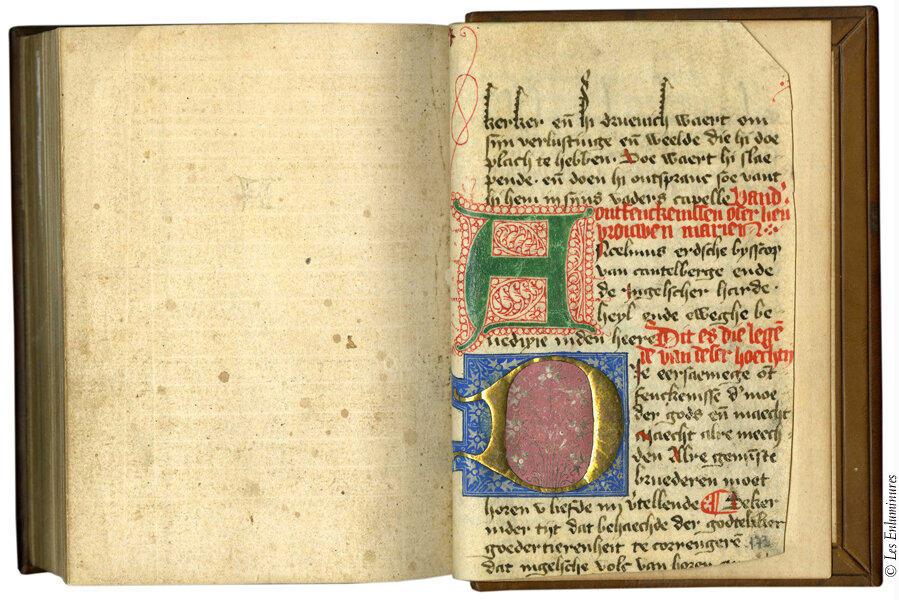 kerker en̄ hi druevich waert om
sijn verlustinge en̄ weelde die hi doe
plach te hebben. Doe waert hi slae
pende. en̄ doen hi ontspranc soe vant
hi hem in sijns vaders capelle Vand'
ontfenckenissen onser lieu
vrouwen marien
Ancelmus erdsche bysscop
van cantelberge ende
de ingelscher harde.
heyl ende eweghe be
nedixie inden heere Dit es die legen
de van deser hoechtij
Die eersaemege ont
fenckenisse d' moe
der gods en̄ maecht
Maecht alre meech
den Alre gemijnste
bruederen moet
horen v liefde mij v'tellende Teker
inder tijt dat behaechde der godteliker
goedertierenheit te correngeren̄
dat ingelsche volc van horen
© Les Enluminures